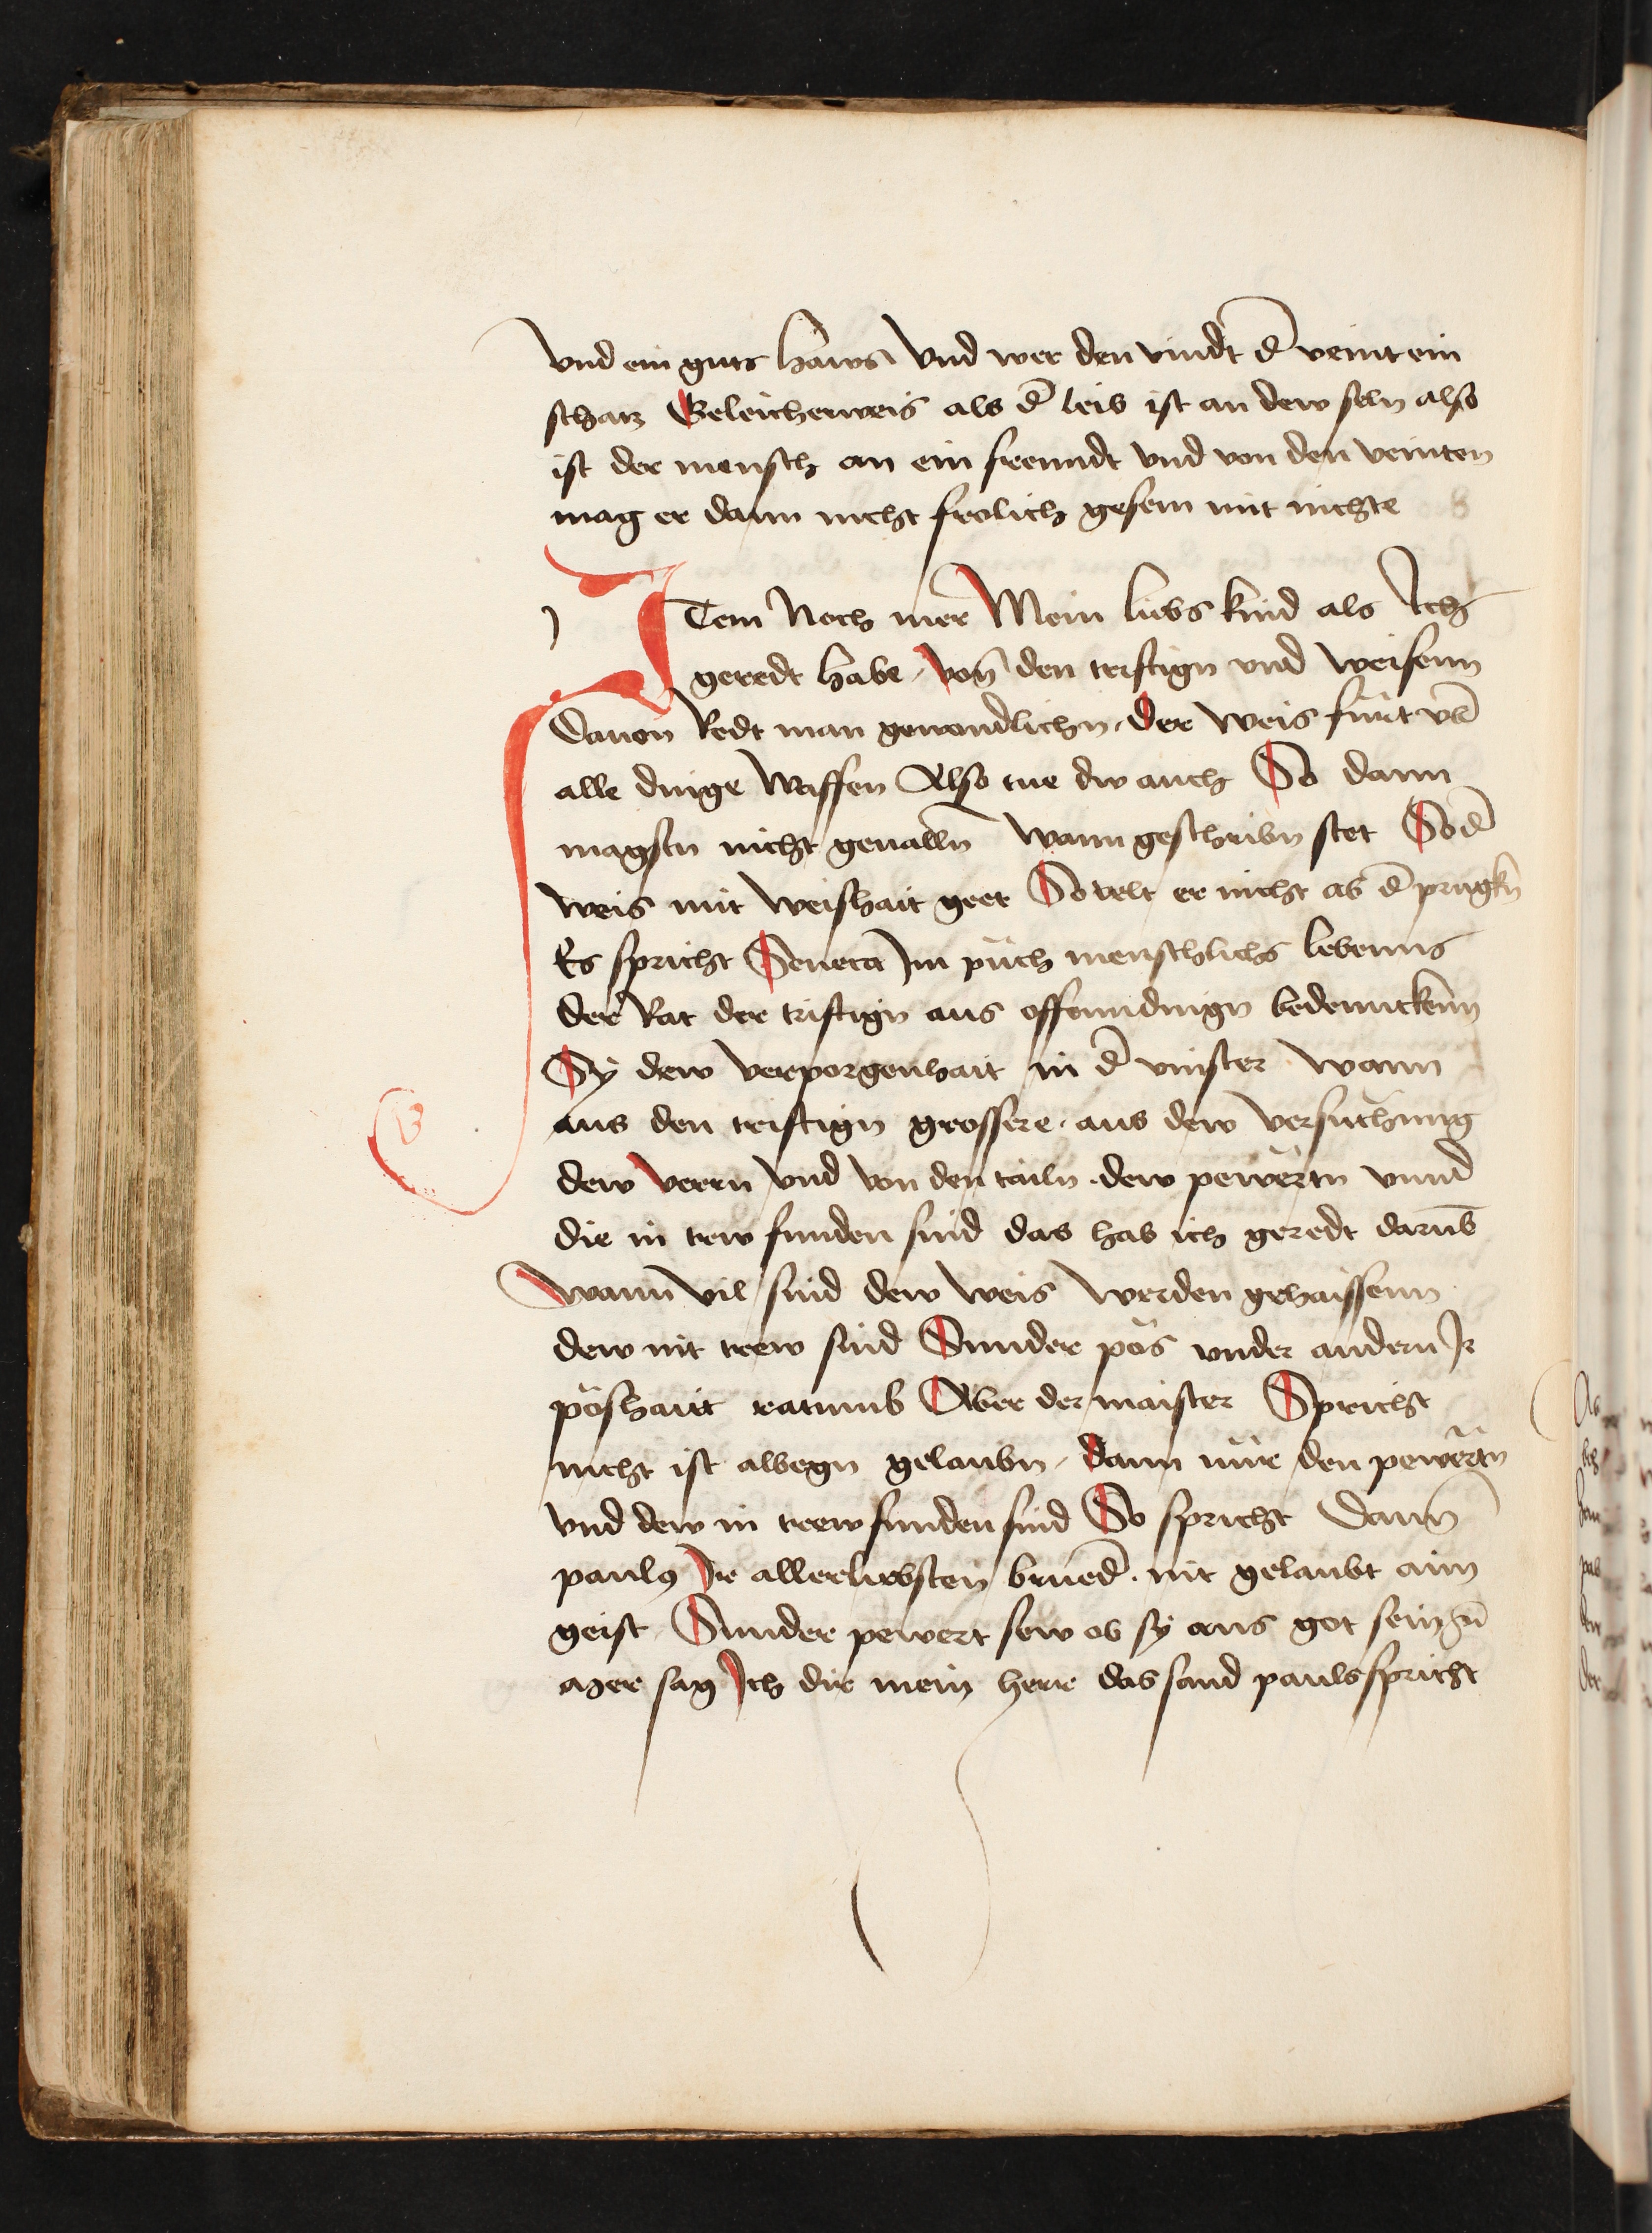 vnd ein guts haws Vnd wer den vindt d̄ veint ein
schatz Geleicherweis als d̄ leib ist an dew seln also
ist der mensch an ein freundt vnd von den veinten
mag er dann nicht frolich gesein mit nichte
ITem Noch mer Mein liebs kind als Ich
geredt habe / Von den tristign vnd Weisenn
Dauon Redt man gewondlichn / der Weis furt vb̄
alle dinge Waffen Also tue dw auch So dann
magstu nicht geuallñ Wann geschribn stet So d̄
Weis mit Weishait geet So velt er nicht ab d̄ prugkñ
Es spricht Seneca Im půch menschlichs lebenns
Der Rat der tristign aus offenndingn bedennckenn
Sy dew Verporgenhait in d̄ vinster Wann
aus den tristign grossere . aus dew Versuchung
dew Verrn Vnd Von den tailn . dew pewertn vnnd
die in trew funden sind das hab ich geredt darūb
Wann Vil sind dew Weis Werden gehaissenn
dew nit trew sind Sunder pös vnder andern Ir
pöshait ratumb Aber der maister Spricht
nicht ist albegn gelaubn / dann nůr den pewërtn
Vnd dew in trew funden sind So spricht Dann
paulꝰ Ir allerliebsten brued̄ . nit gelaubt aim
geist Sunder pewert sew ob sy aus got sein zū
ager sag Ich dir mein herr das sand pauls spricht